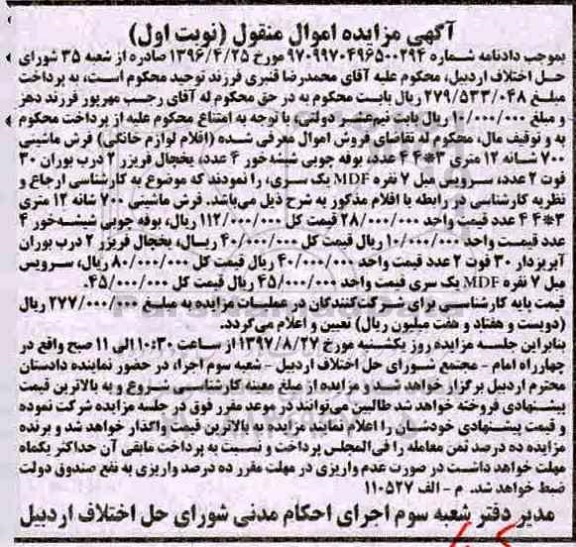 آگهی مزایده اموال منقول (نوبت اول)
بموجب دادنامه شماره ۹۷۰۹۹۷۰۴۹۶۵۰۰۲۹۴ مورخ ۱۳۹۶/۴/۲۵ صادره از شعبه ۳۵ شورای
حل اختلاف اردبیل، محکوم علیه آقای محمدرضا قنبری فرزند توحید محکوم است، به پرداخت
مبلغ ۲۷۹/۵۳۳/۰۴۸ ریال بابت محکوم به در حق محکوم له آقای رجب مهرپور فرزند دهز
و مبلغ ۱۰/۰۰۰/۰۰۰ ریال بابت نیم‌عشر دولتی، با توجه به امتناع محکوم علیه از پرداخت محکوم
به و توقیف مال، محکوم له تقاضای فروش اموال معرفی شده (اقلام لوازم خانگی) فرش ماشینی
۷۰۰ شانه ۱۲ متری ۳*۴ ۴ عدد، بوفه چوبی شیشه‌خور ۴ عدد، یخچال فریزر ۲ درب بوران ۳۰
فوت ۲ عدد، سرویس مبل ۷ نفره MDF یک سری، را نمودند که موضوع به کارشناسی ارجاع و
نظریه کارشناسی در رابطه با اقلام مذکور به شرح ذیل می‌باشد. فرش ماشینی ۷۰۰ شانه ۱۲ متری
۳*۴ ۴ عدد قیمت واحد ۲۸/۰۰۰/۰۰۰ قیمت کل ۱۱۲/۰۰۰/۰۰۰ ریال، بوفه چوبی شیشه‌خور ۴
عدد قیمت واحد ۱۰/۰۰۰/۰۰۰ ریال قیمت کل ۴۰/۰۰۰/۰۰۰ ریال، یخچال فریزر ۲ درب بوران
آبریزدار ۳۰ فوت ۲ عدد قیمت واحد ۴۰/۰۰۰/۰۰۰ ریال قیمت کل ۸۰/۰۰۰/۰۰۰ ریال، سرویس
مبل ۷ نفره MDF یک سری قیمت واحد ۴۵/۰۰۰/۰۰۰ ریال قیمت کل ۴۵/۰۰۰/۰۰۰.
قیمت پایه کارشناسی برای شرکت‌کنندگان در عملیات مزایده به مبلغ ۲۷۷/۰۰۰/۰۰۰ ریال
(دویست و هفتاد و هفت میلیون ریال) تعیین و اعلام می‌گردد.
بنابراین جلسه مزایده روز یکشنبه مورخ ۱۳۹۷/۸/۲۷ از ساعت ۱۰:۳۰ الی ۱۱ صبح واقع در
چهارراه امام - مجتمع شورای حل اختلاف اردبیل - شعبه سوم اجرا، در حضور نماینده دادستان
محترم اردبیل برگزار خواهد شد و مزایده از مبلغ معینه کارشناسی شروع و به بالاترین قیمت
پیشنهادی فروخته خواهد شد طالبین می‌توانند در موعد مقرر فوق در جلسه مزایده شرکت نموده
و قیمت پیشنهادی خودشان را اعلام نمایند مزایده به بالاترین قیمت واگذار خواهد شد و برنده
مزایده ده درصد ثمن معامله را فی‌المجلس پرداخت و نسبت به پرداخت مابقی آن حداکثر یکماه
مهلت خواهد داشت در صورت عدم واریزی در مهلت مقرر ده درصد واریزی به نفع صندوق دولت
ضبط خواهد شد. م - الف ۱۱۰۵۲۷
مدیر دفتر شعبه سوم اجرای احکام مدنی شورای حل اختلاف اردبیل